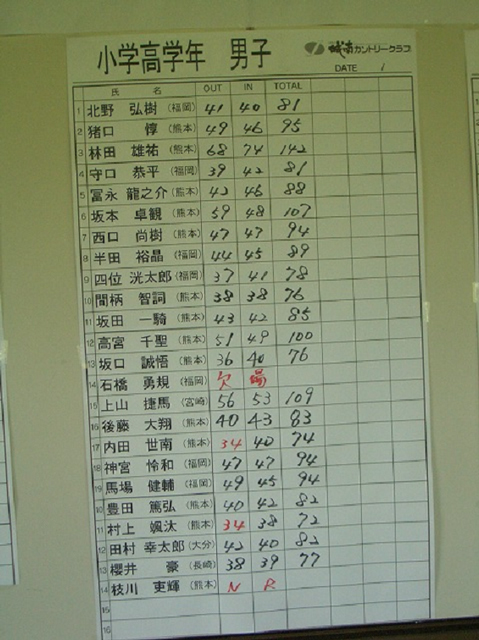 小学高学年 男子 城南カントリークラブ
DATE /
氏 名 OUT IN TOTAL
1 北野 弘樹 (福岡) 41 40 81
2 猪口 惇 (熊本) 49 46 95
3 林田 雄祐 (熊本) 68 74 142
4 守口 恭平 (福岡) 39 42 81
5 冨永 龍之介 (熊本) 42 46 88
6 坂本 卓観 (熊本) 59 48 107
7 西口 尚樹 (熊本) 47 47 94
8 半田 裕晶 (福岡) 44 45 89
9 四位 洸太郎 (福岡) 37 41 78
10 間柄 智詞 (熊本) 38 38 76
11 坂田 一騎 (熊本) 43 42 85
12 高宮 千聖 (熊本) 51 49 100
13 坂口 誠悟 (熊本) 36 40 76
14 石橋 勇規 (福岡) 欠 場
15 上山 捷馬 (宮崎) 56 53 109
16 後藤 大翔 (熊本) 40 43 83
17 内田 世南 (熊本) 34 40 74
18 神宮 怜和 (福岡) 47 47 94
19 馬場 健輔 (福岡) 49 45 94
10 豊田 篤弘 (熊本) 40 42 82
11 村上 颯汰 (熊本) 34 38 72
12 田村 幸太郎 (大分) 42 40 82
13 櫻井 豪 (長崎) 38 39 77
14 枝川 吏輝 (熊本) N R
15
16